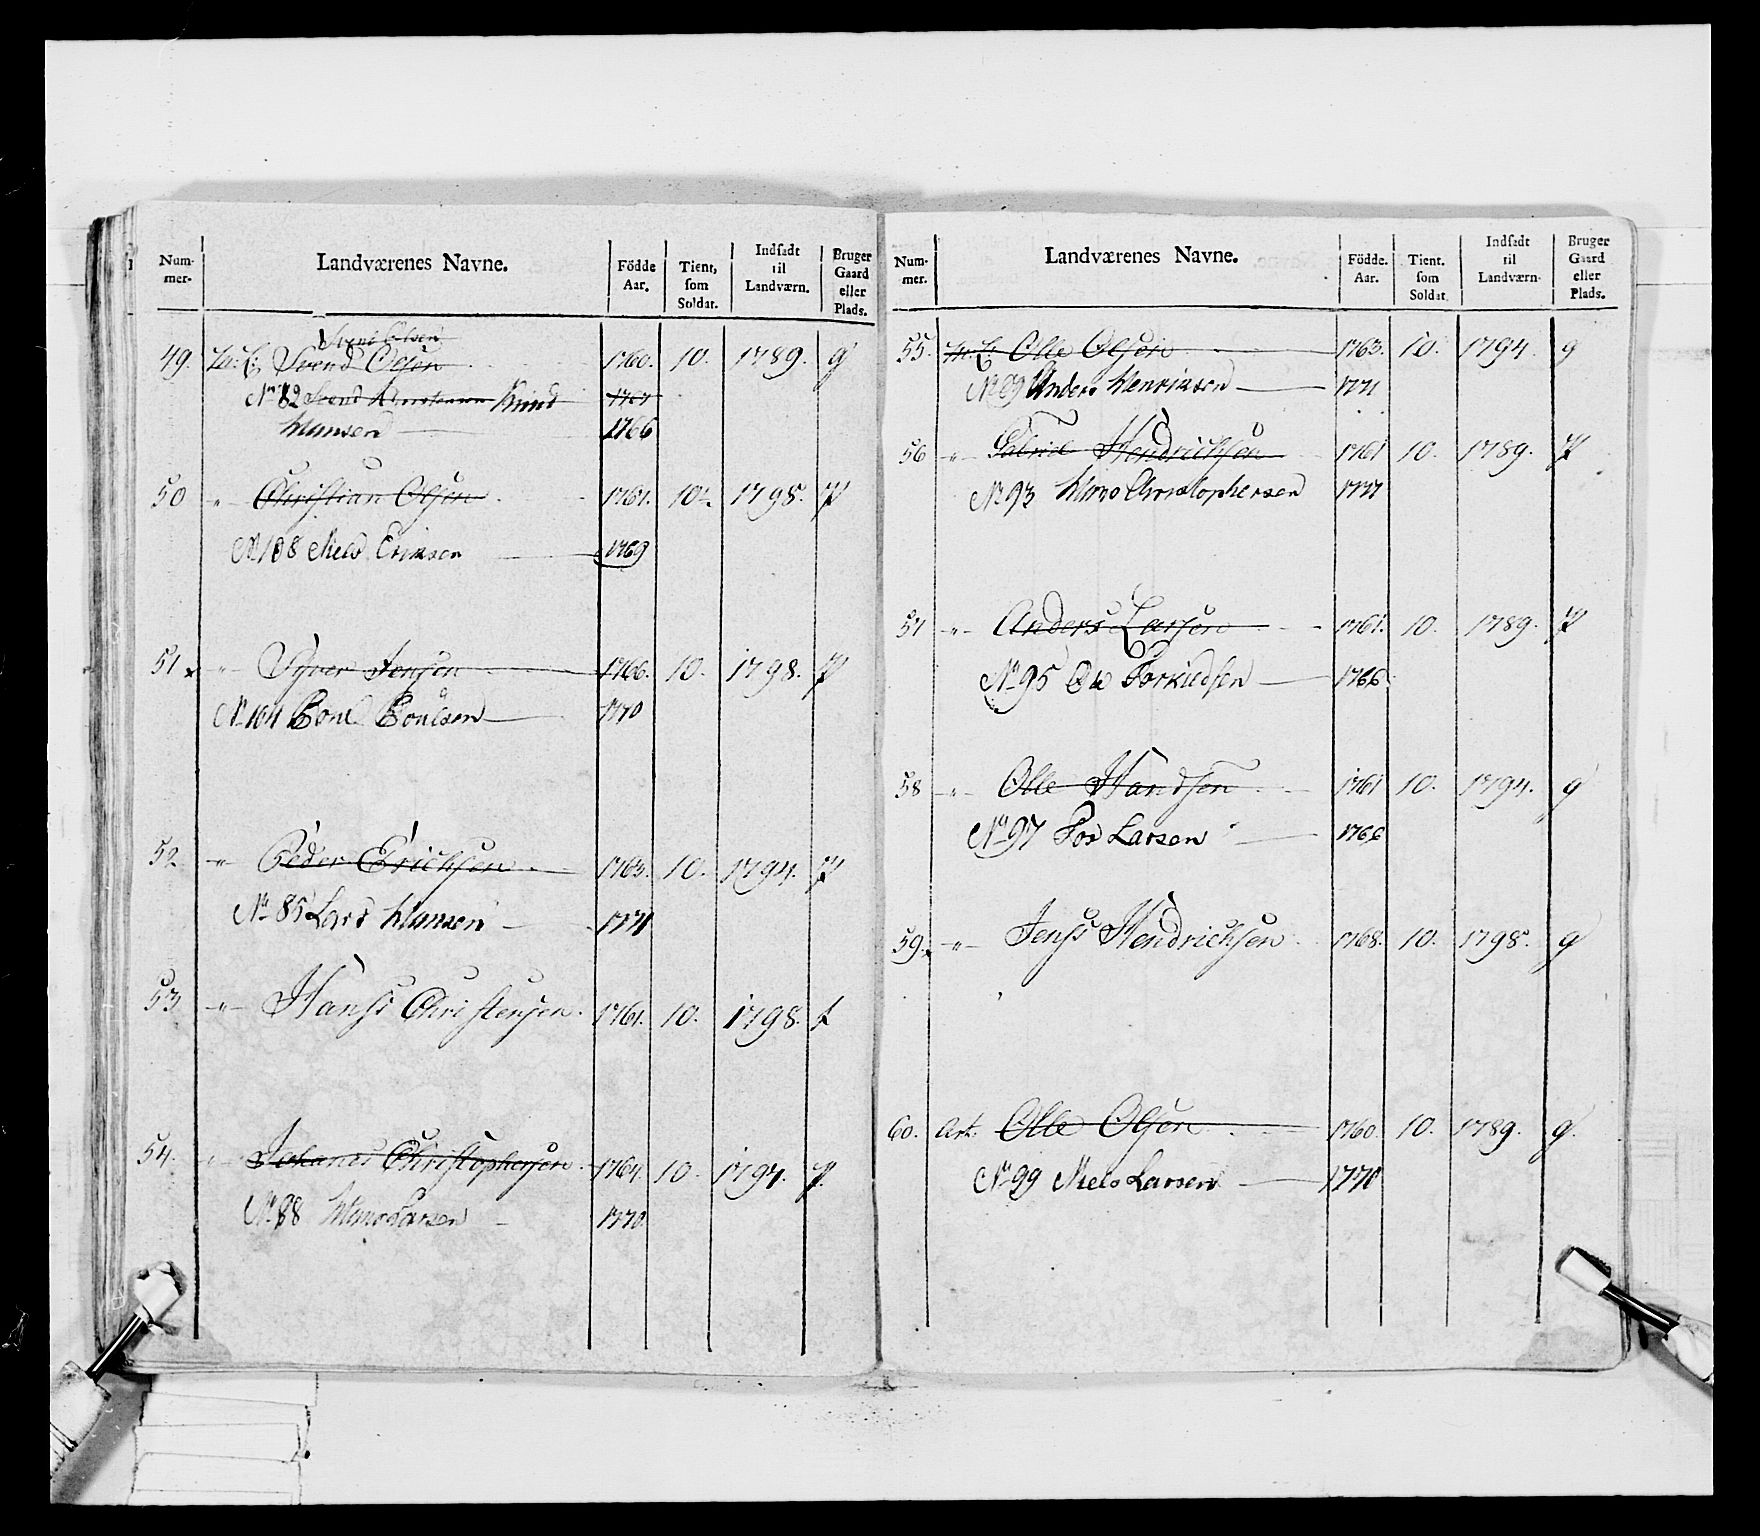 Num-
mer-
Landværenes Navne.
Födde
Aar.
Tient,
som
Soldat.
Indsadt
til
Landværn.
Bruger
Gaard
eller
Plads.
Svend Olsen
49. Svend Olsen 1760. 10. 1789. g
No 82 Svend Knud
Hansen 1766
50 " Christian Olsen 1761. 10. 1798. p
No 108 Niels Eriksen 1769
51 " Syver Jensen 1766. 10. 1798. p
No 164 Poul Poulsen 1770
52 " Peder Erichsen 1763. 10. 1794. p
No 85 Lars Hansen 1771
53 " Hans Christensen. 1761. 10. 1798.
54. " Johanes Christophersen. 1764. 10. 1794. p
No 88 Hans Larsen 1770
Num-
mer.
Landværenes Navne.
Födde.
Aar.
Tient.
som
Soldat
Indsadt
til
Landværn-
Bruger
Gaard
eller
Plads.
55. Olle Olsen 1763. 10. 1794. g
No 89 Anders Henriksen 1771
56 " Gabriel Hendrichsen 1761 10. 1789. p
No 93 Hans Christophersen 1777
57 " Anders Larsen 1761. 10. 1789. p
No 95 Ole Torkildsen 1766
58 " Olle Handsen 1761 10. 1794. g
No 97 Tor Larsen 1766
59. " Jens Hendrichsen 1768. 10. 1798. g
60. Art. Olle Olsen 1760. 10. 1789. g.
No 99 Niels Larsen 1770